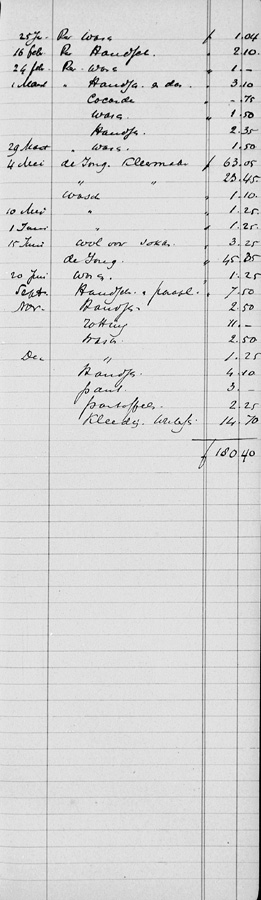 25 Ja. Per Wasch f 1.04
16 feb. Per Handsch. 2.10
24 feb. Per Wasch " 1.—
1 Maart " Handsch. " 3.10
Cocarde " —.75
Wasch " 1.50
Handsch. " 2.35
29 Maart " Wasch " 1.50
4 Mei de Jong. Kleermaker f 63.05
" " 23.45
Wasch " 1.10
10 Mei " " 1.25
1 Juni " " 1.25
15 Juni Wol voor Sokken " 3.25
de Jong. " 45.85
20 Juni Wasch " 1.25
Sept. Handsch. " 7.50
Nov. Handsch. 2.50
11.—
Wasch 2.50
Dec " 1.25
Handsch. 4.10
3.—
pantoffels 2.25
14.70
f 180.40